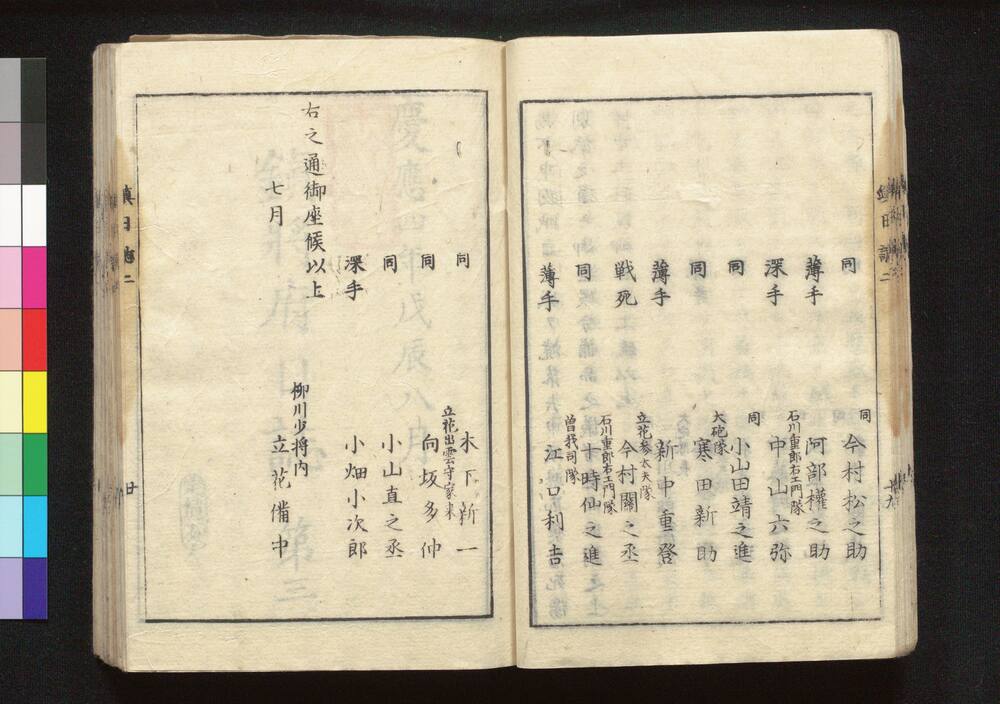 同　同　今村松之助
薄手　阿部權之助
石川重郎右エ門隊
深手　中山六弥
同　同　小山田靖之進
大砲隊
同　寒田新助
薄手　新中重登
立花参太夫隊
戦死　今村關之丞
石川重郎右エ門隊
同　十時仙之進
曽我司隊
薄手　江口利吉
同　木下新一
立花出雲守家来
同　向坂多仲
同　小山直之丞
深手　小畑小次郎
右之通御座候以上
七月　柳川少将内
立花備中
廿